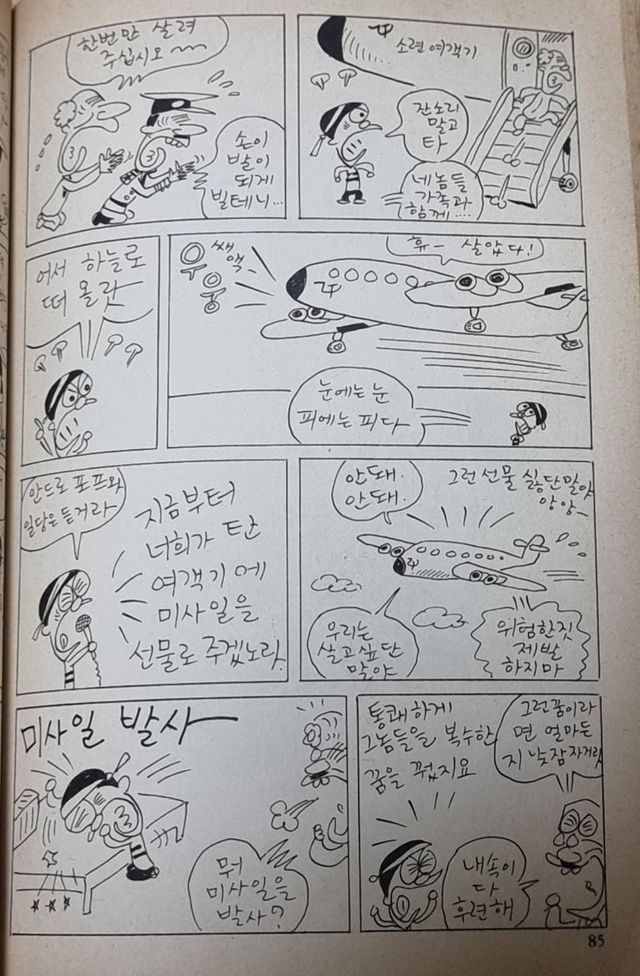 한번만 살려
주십시오
손이
발이
되게
빌테니…
소련여객기
잔소리
말고
타
네놈들
가족과
함께….
어서 하늘로
떠 올라
쌔액
우웅
휴— 살았다!
눈에는 눈
피에는 피다
안드로포프와
일당은 듣거라
지금부터
너희가 탄
여객기에
미사일을
선물로 주겠노라.
안돼.
안돼.
그런 선물 싫단말야
앙앙—
우리는
살고싶단
말야
위험한짓
제발
하지마
미사일 발사—
뭐
미사일을
발사?
통쾌하게
그놈들을 복수한
꿈을 꿨지요
그런꿈이라
면 얼마든
지 낮잠자거라
내속이
다
후련해
85